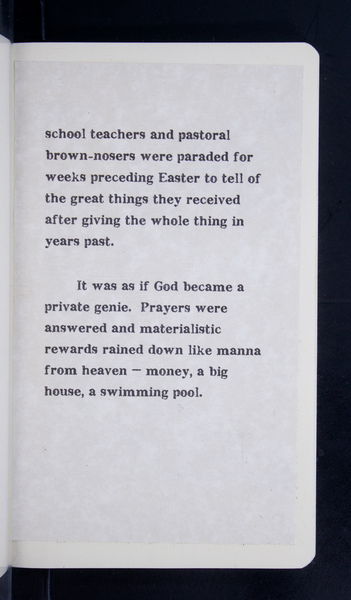 school teachers and pastoral
brown-nosers were paraded for
weeks preceding Easter to tell of
the great things they received
after giving the whole thing in
years past.
It was as if God became a
private genie. Prayers were
answered and materialistic
rewards rained down like manna
from heaven — money, a big
house, a swimming pool.